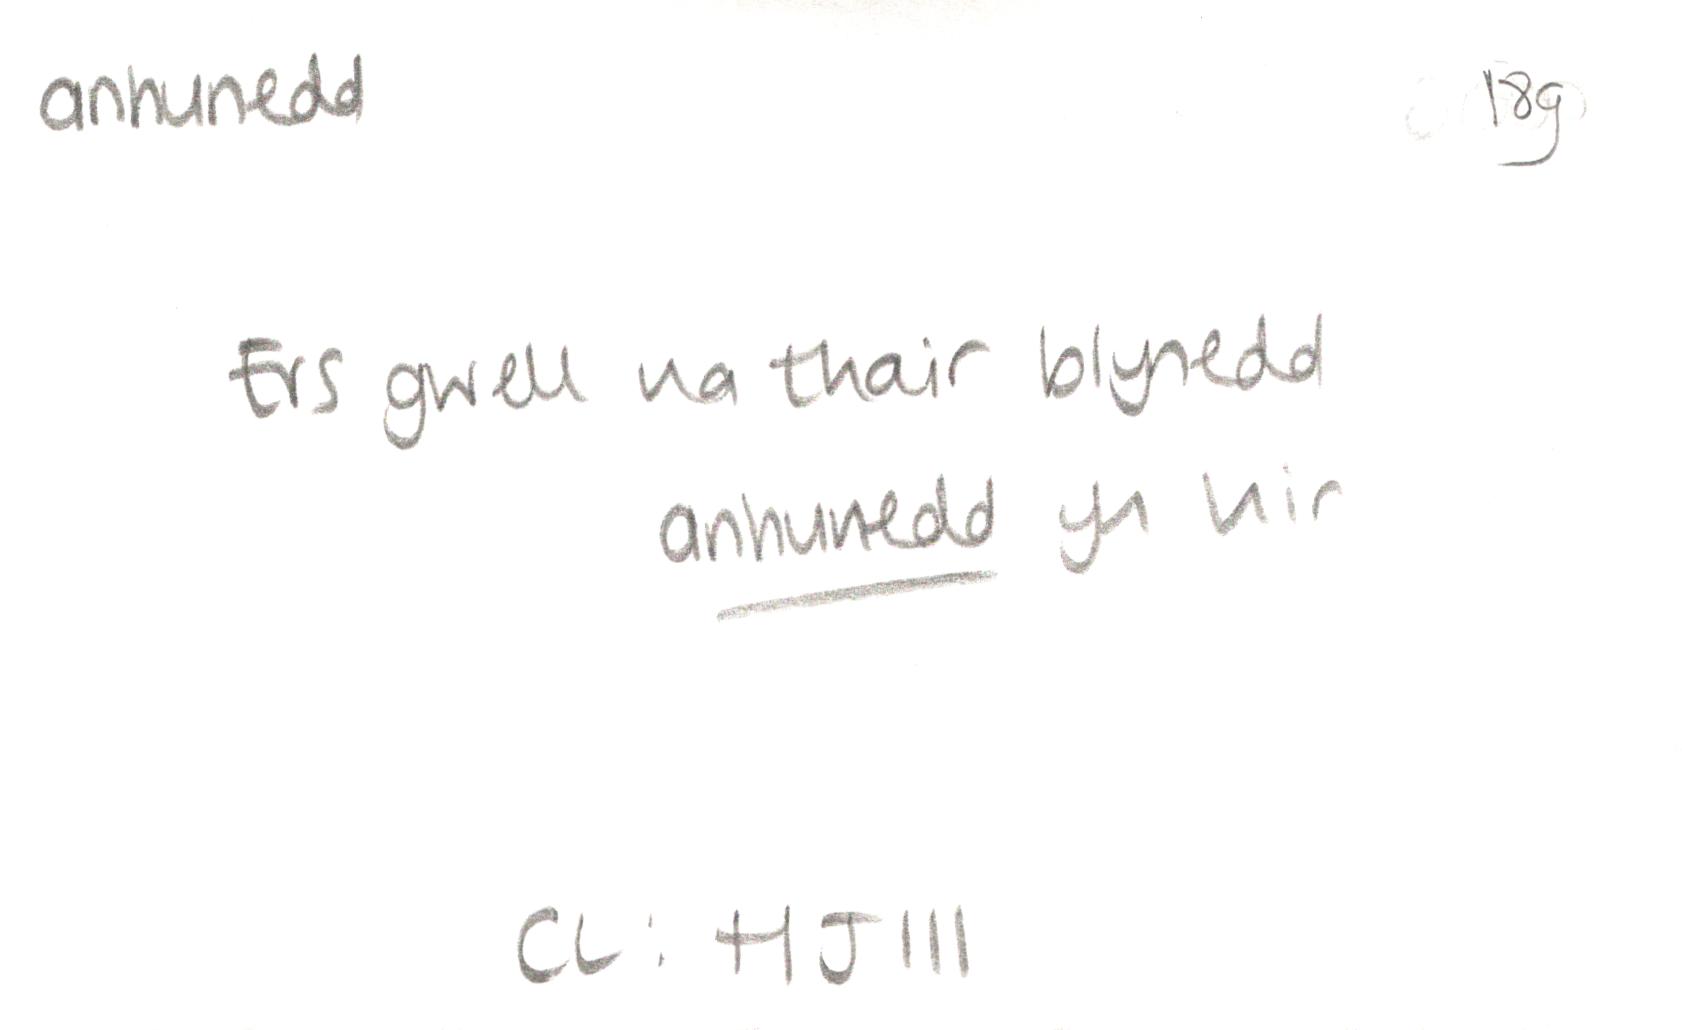 anhunedd 18g
Ers gwell na thair blynedd
anhunedd yn hir
CL: HJ 111